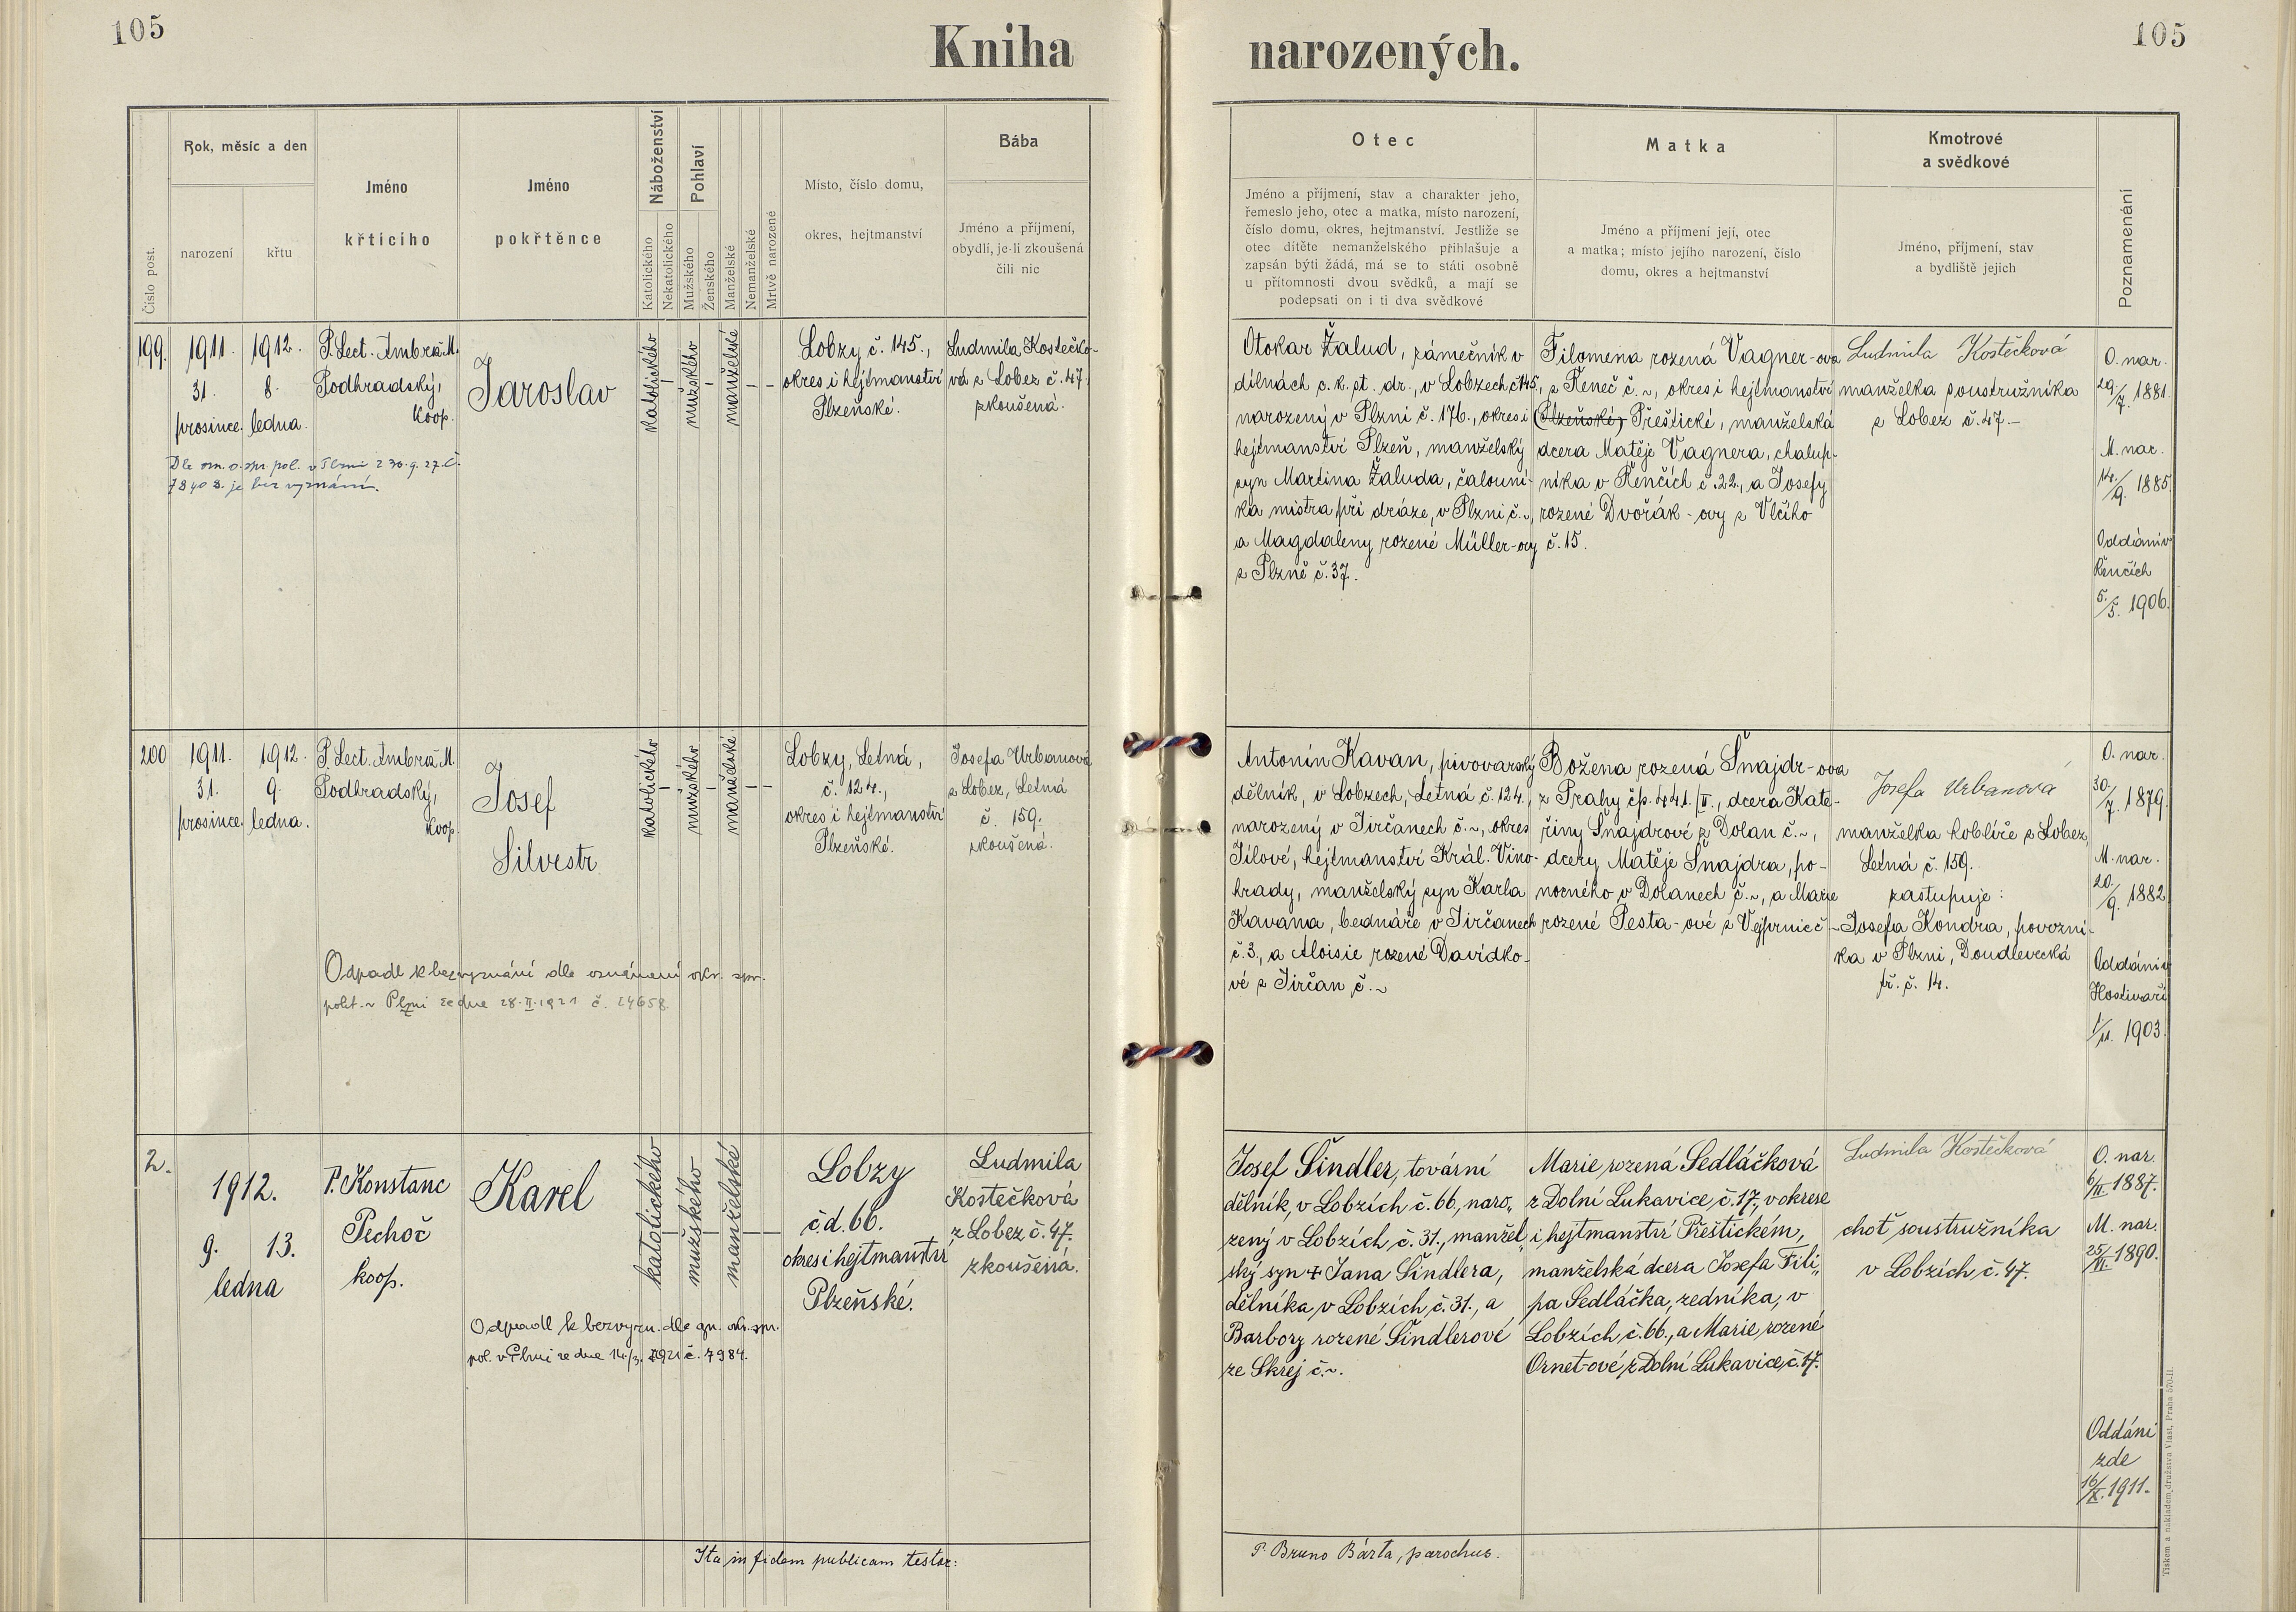 105
Kniha narozených.
105
Číslo post.
Rok, měsíc a den
narození
křtu
Jméno
křticího
Jméno
pokřtěnce
Náboženství
Katolického
Nekatolického
Pohlaví
Mužského
Ženského
Manželské
Nemanželské
Mrtvě narozené
Místo, číslo domu,
okres, hejtmanství
Bába
Jméno a příjmení,
obydlí, je-li zkoušená
čili nic
Otec
Jméno a příjmení, stav a charakter jeho,
řemeslo jeho, otec a matka, místo narození,
číslo domu, okres, hejtmanství. Jestliže se
otec dítěte nemanželského přihlašuje a
zapsán býti žádá, má se to státi osobně
u přítomnosti dvou svědků, a mají se
podepsati on i ti dva svědkové
Matka
Jméno a příjmení její, otec
a matka; místo jejího narození, číslo
domu, okres a hejtmanství
Kmotrové
a svědkové
Jméno, příjmení, stav
a bydliště jejich
Poznamenání
199.
1911.
31.
prosince.
1912.
8.
ledna.
P. Lect. Ambrož M.
Podhradský,
koop.
Jaroslav
katolického
–
mužského
–
manželské
–
–
Lobzy č. 145.,
okres i hejtmanství
Plzeňské.
Ludmila Kostečko-
vá z Lobez č. 47.
zkoušená.
Dle ozn. o. spr. pol. v Plzni z 30. 9. 27. č.
78403. je bez vyznání.
Otokar Žalud, zámečník v
dílnách c. k. st. dr., v Lobzech č 145,
narozený v Plzni č. 176., okres i
hejtmanství Plzeň, manželský
syn Martina Žaluda, čalouní-
ka mistra při dráze, v Plzni č. ~,
a Magdaleny rozené Müller-ovy
z Plzně č. 37.
Filomena rozená Vagner-ova
z Řeneč č. ~, okres i hejtmanství
(Plzeňské) Přeštické, manželská
dcera Matěje Vagnera, chalup-
níka v Řenčích č. 22., a Josefy
rozené Dvořák-ovy z Vlčího
č. 15.
Ludmila Kostečková
manželka soustružníka
z Lobez č. 47.–
O. nar.
29./7. 1881.
M. nar.
14./9. 1885.
Oddáni v
Řenčích
5./5. 1906.
200
1911.
31.
prosince.
1912.
9.
ledna.
P. Lect. Ambrož M.
Podhradský,
koop.
Josef
Silvestr
katolického
–
mužského
–
manželské
–
–
Lobzy, Letná,
č. 124.,
okres i hejtmanství
Plzeňské.
Josefa Urbanová
z Lobez, Letná
č. 159.
zkoušená.
Odpadl k bezvyznání dle oznámení okr. spr.
polit. v Plzni ze dne 28. II. 1921 č. 24658.
Antonín Kavan, pivovarský
dělník, v Lobzech, Letná č. 124.,
narozený v Jirčanech č. ~, okres
Jílové, hejtmanství Král. Vino-
hrady, manželský syn Karla
Kavana, bednáře v Jirčanech
č. 3., a Aloisie rozené Davídko-
vé z Jirčan č. ~
Božena rozená Šnajdr-ova
z Prahy čp. 441./II., dcera Kate-
řiny Šnajdrové z Dolan č. ~,
dcery Matěje Šnajdra, po-
nocného v Dolanech č. ~, a Marie
rozené Pesta-ové z Vejprnic č ~
Josefa Urbanová
manželka koblíře z Lobez,
Letná č. 159.
zastupuje:
Josefa Kondra, povozní-
ka v Plzni, Doudlevecká
tř. č. 14.
O. nar.
30./7. 1879.
M. nar.
20./9. 1882
Oddáni v
Hostivaři
1./11. 1903.
2.
1912.
9. 13.
ledna
P. Konstanc
Pechoč
koop.
Karel
katolického
–
mužského
–
manželské
–
–
Lobzy
č.d. 66.
okres i hejtmanství
Plzeňské.
Ludmila
Kostečková
z Lobez č. 47.
zkoušená.
Odpadl k bezvyzn. dle zn. okr. spr.
pol. v Plzni ze dne 14./3. 1921 č. 7984.
Josef Šindler, tovární
dělník, v Lobzích č. 66, naro„
zený v Lobzích č. 31., manžel„
ský syn + Jana Šindlera,
dělníka v Lobzích č. 31., a
Barbory rozené Šindlerové
ze Skrej č. ~.
Marie rozená Sedláčková
z Dolní Lukavice č. 17., v okrese
i hejtmanství Přeštickém,
manželská dcera Josefa Fili„
pa Sedláčka, zedníka, v
Lobzích č. 66., a Marie rozené
Ornet-ové z Dolní Lukavice, č. 17.
Ludmila Kostečková
choť soustružníka
v Lobzích č. 47.
O. nar.
6/II. 1887.
M. nar.
25/VI. 1890.
Oddáni
zde
16/X. 1911.
Ita in fidem publicam testor:
P. Bruno Bárta, parochus.
Tiskem a nákladem družstva Vlast, Praha 570-II.